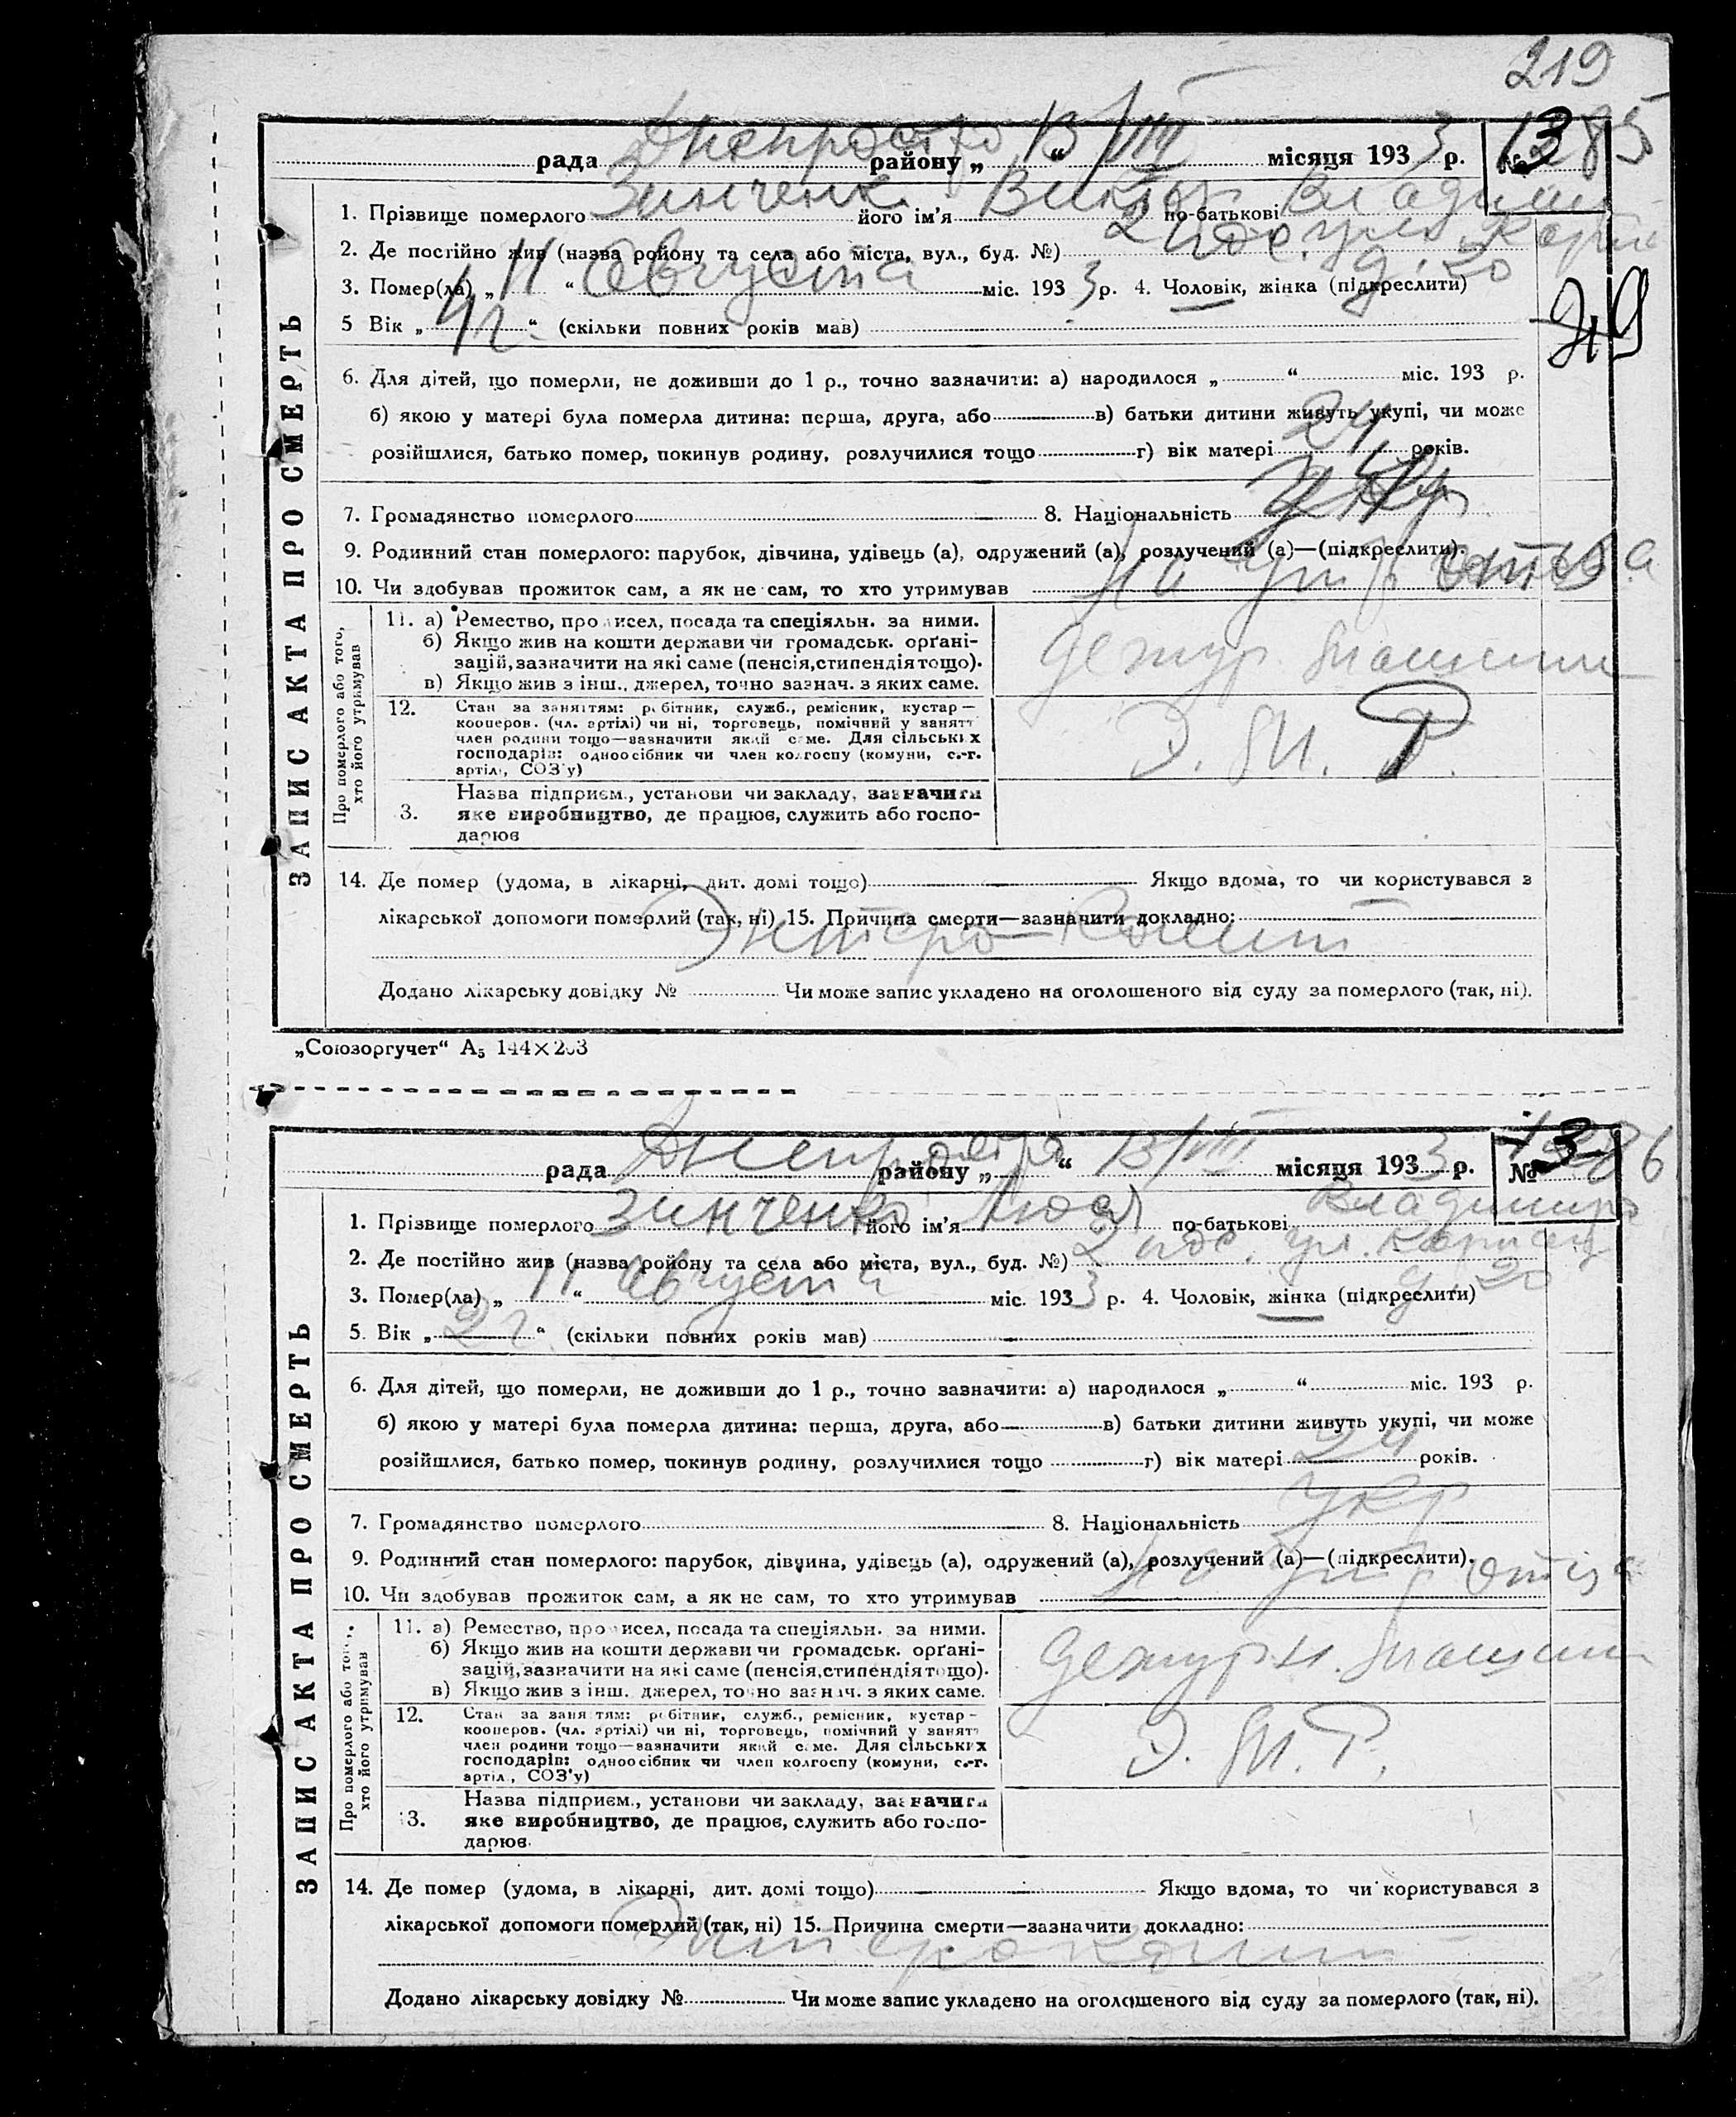 219
рада Днепростро району „ 13/VIII “ місяця 1933 р. №
1. Прізвище померлого Зинченк його ім’я Виктор по-батькові Владими
2. Де постійно жив (назва ройону та села або міста, вул., буд. №) 2 удс. ул.
д. 20
3. Помер(ла) „ 11 “ Августа міс. 1933 р. 4. Чоловік, жінка (підкреслити)
5 Вік „ 4 г. “ (скільки повних років мав)
6. Для дітей, що померли, не доживши до 1 р., точно зазначити: а) народилося „ “ міс. 193 р.
б) якою у матері була померла дитина: перша, друга, або в) батьки дитини живуть укупі, чи може
розійшлися, батько помер, покинув родину, розлучилися тощо г) вік матері 24 років.
7. Громадянство померлого 8. Національність укр
9. Родинний стан померлого: парубок, дівчина, удівець (а), одружений (а), розлучений (а)—(підкреслити).
10. Чи здобував прожиток сам, а як не сам, то хто утримував отца
ЗАПИС АКТА ПРО СМЕРТЬ
Про померлого або того, хто його утримував
11. а) Ремество, промисел, посада та спеціяльн. за ними.
б) Якщо жив на кошти держави чи громадськ. орґані-
зацій, зазначити на які саме (пенсія, стипендія тощо).
в) Якщо жив з інш. джерел, точно зазнач. з яких саме.
дежур. машини
12. Стан за заняттям: робітник, служб., ремісник, кустар—
кооперов. (чл. артілі) чи ні, торговець, помічний у занятт
член родини тощо—зазначити який саме. Для сільських
господарів: одноосібник чи член колгоспу (комуни, с.-г.
артіл., СОЗ'у)
Р.
3. Назва підприєм., установи чи закладу, зазначити
яке виробництво, де працює, служить або госпо-
дарює
14. Де помер (удома, в лікарні, дит. домі тощо) Якщо вдома, то чи користувався з
лікарської допомоги померлий (так, ні) 15. Причина смерти—зазначити докладно:
Энтеро-Колит
Додано лікарську довідку № Чи може запис укладено на оголошеного від суду за померлого (так, ні).
„Союзоргучет“ А5 144×203
рада Днепростро району „ “ 13/VIII місяця 1933 р. №
1. Прізвище померлого Зинченко його ім’я Люся по-батькові Владимиро
2. Де постійно жив (назва ройону та села або міста, вул., буд. №) 2 удс. ул.
д. 20
3. Помер(ла) „ 11 “ Августа міс. 1933 р. 4. Чоловік, жінка (підкреслити)
5. Вік „ 2 г. “ (скільки повних років мав)
6. Для дітей, що померли, не доживши до 1 р., точно зазначити: а) народилося „ “ міс. 193 р.
б) якою у матері була померла дитина: перша, друга, або в) батьки дитини живуть укупі, чи може
розійшлися, батько помер, покинув родину, розлучилися тощо г) вік матері 24 років.
7. Громадянство померлого 8. Національність укр
9. Родинний стан померлого: парубок, дівчина, удівець (а), одружений (а), розлучений (а)—(підкреслити).
10. Чи здобував прожиток сам, а як не сам, то хто утримував отца
ЗАПИС АКТА ПРО СМЕРТЬ
Про померлого або того, хто його утримував
11. а) Ремество, промисел, посада та спеціяльн. за ними.
б) Якщо жив на кошти держави чи громадськ. орґані-
зацій, зазначити на які саме (пенсія, стипендія тощо).
в) Якщо жив з інш. джерел, точно зазнач. з яких саме.
дежурн. машин
12. Стан за заняттям: робітник, служб., ремісник, кустар-
кооперов. (чл. артілі) чи ні, торговець, помічний у занятт
член родини тощо—зазначити який саме. Для сільських
господарів: одноосібник чи член колгоспу (комуни, с.-г.
артіл., СОЗ'у)
Р.
3. Назва підприєм., установи чи закладу, зазначити
яке виробництво, де працює, служить або госпо-
дарює.
14. Де помер (удома, в лікарні, дит. домі тощо) Якщо вдома, то чи користувався з
лікарської допомоги померлий (так, ні) 15. Причина смерти—зазначити докладно:
Энтероколит
Додано лікарську довідку № Чи може запис укладено на оголошеного від суду за померлого (так, ні).